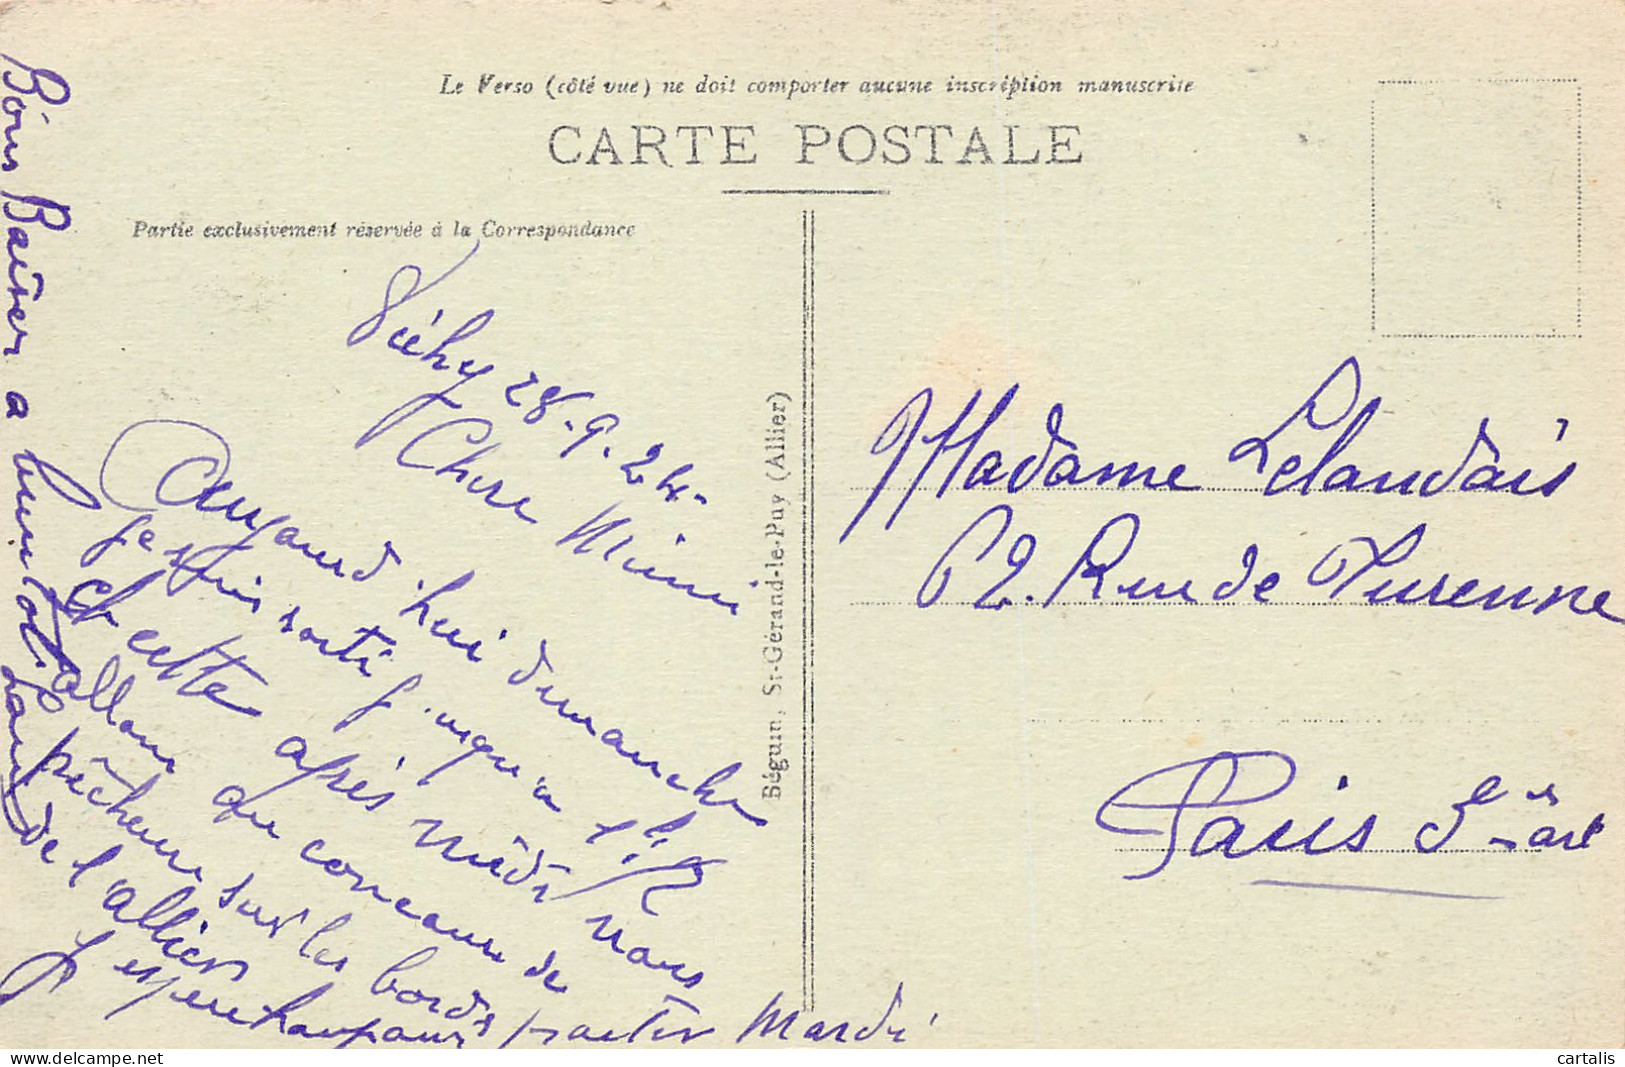 Le Verso (côté vue) ne doit comporter aucune inscription manuscrite
CARTE POSTALE
Partie exclusivement réservée à la Correspondance
Vichy 28-9-24-
Chere Mimi
Aujourd'hui dimanche
Je suis sorti jusqu'a
et cette après midi nous
allons au concours de
pêcheurs sur les bords
de l'allier
J'espere partir Mardi
Bons Baisers a
Louis
Béguin, St-Gérand-le-Puy (Allier)
Madame Lelandais
62. Rue de Turenne
Paris 3e arr
cartalis